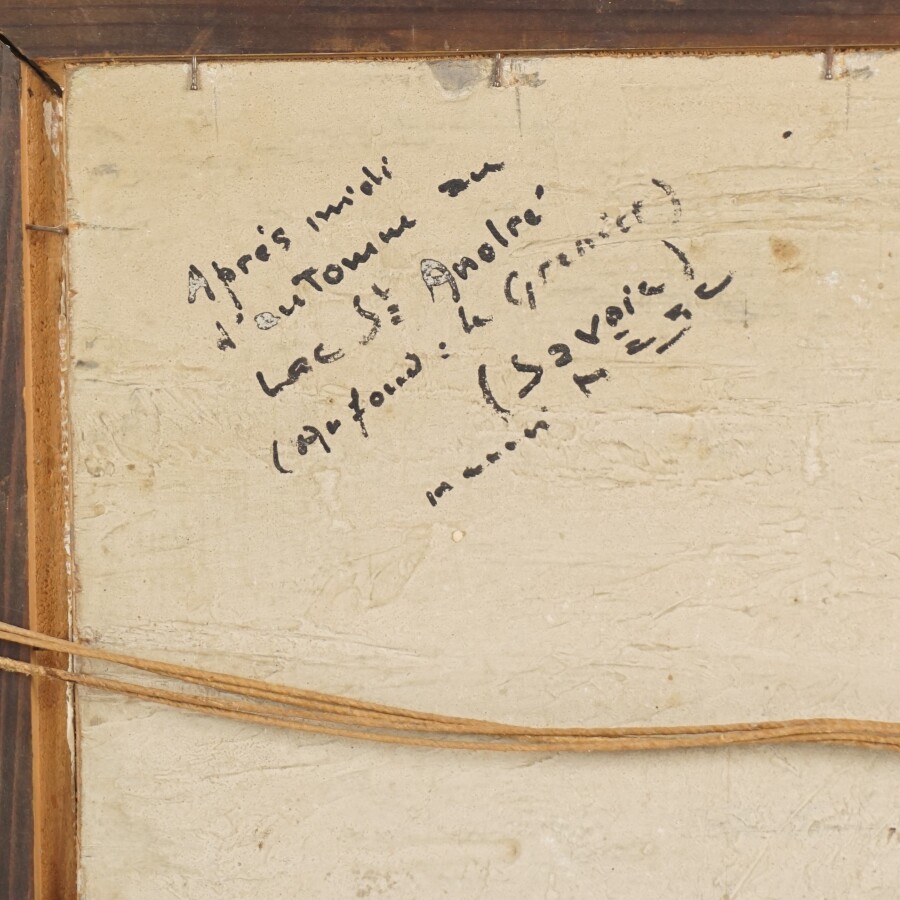 Après midi
d'automne au
Lac St André
(au fond : le Granier)
(Savoie)